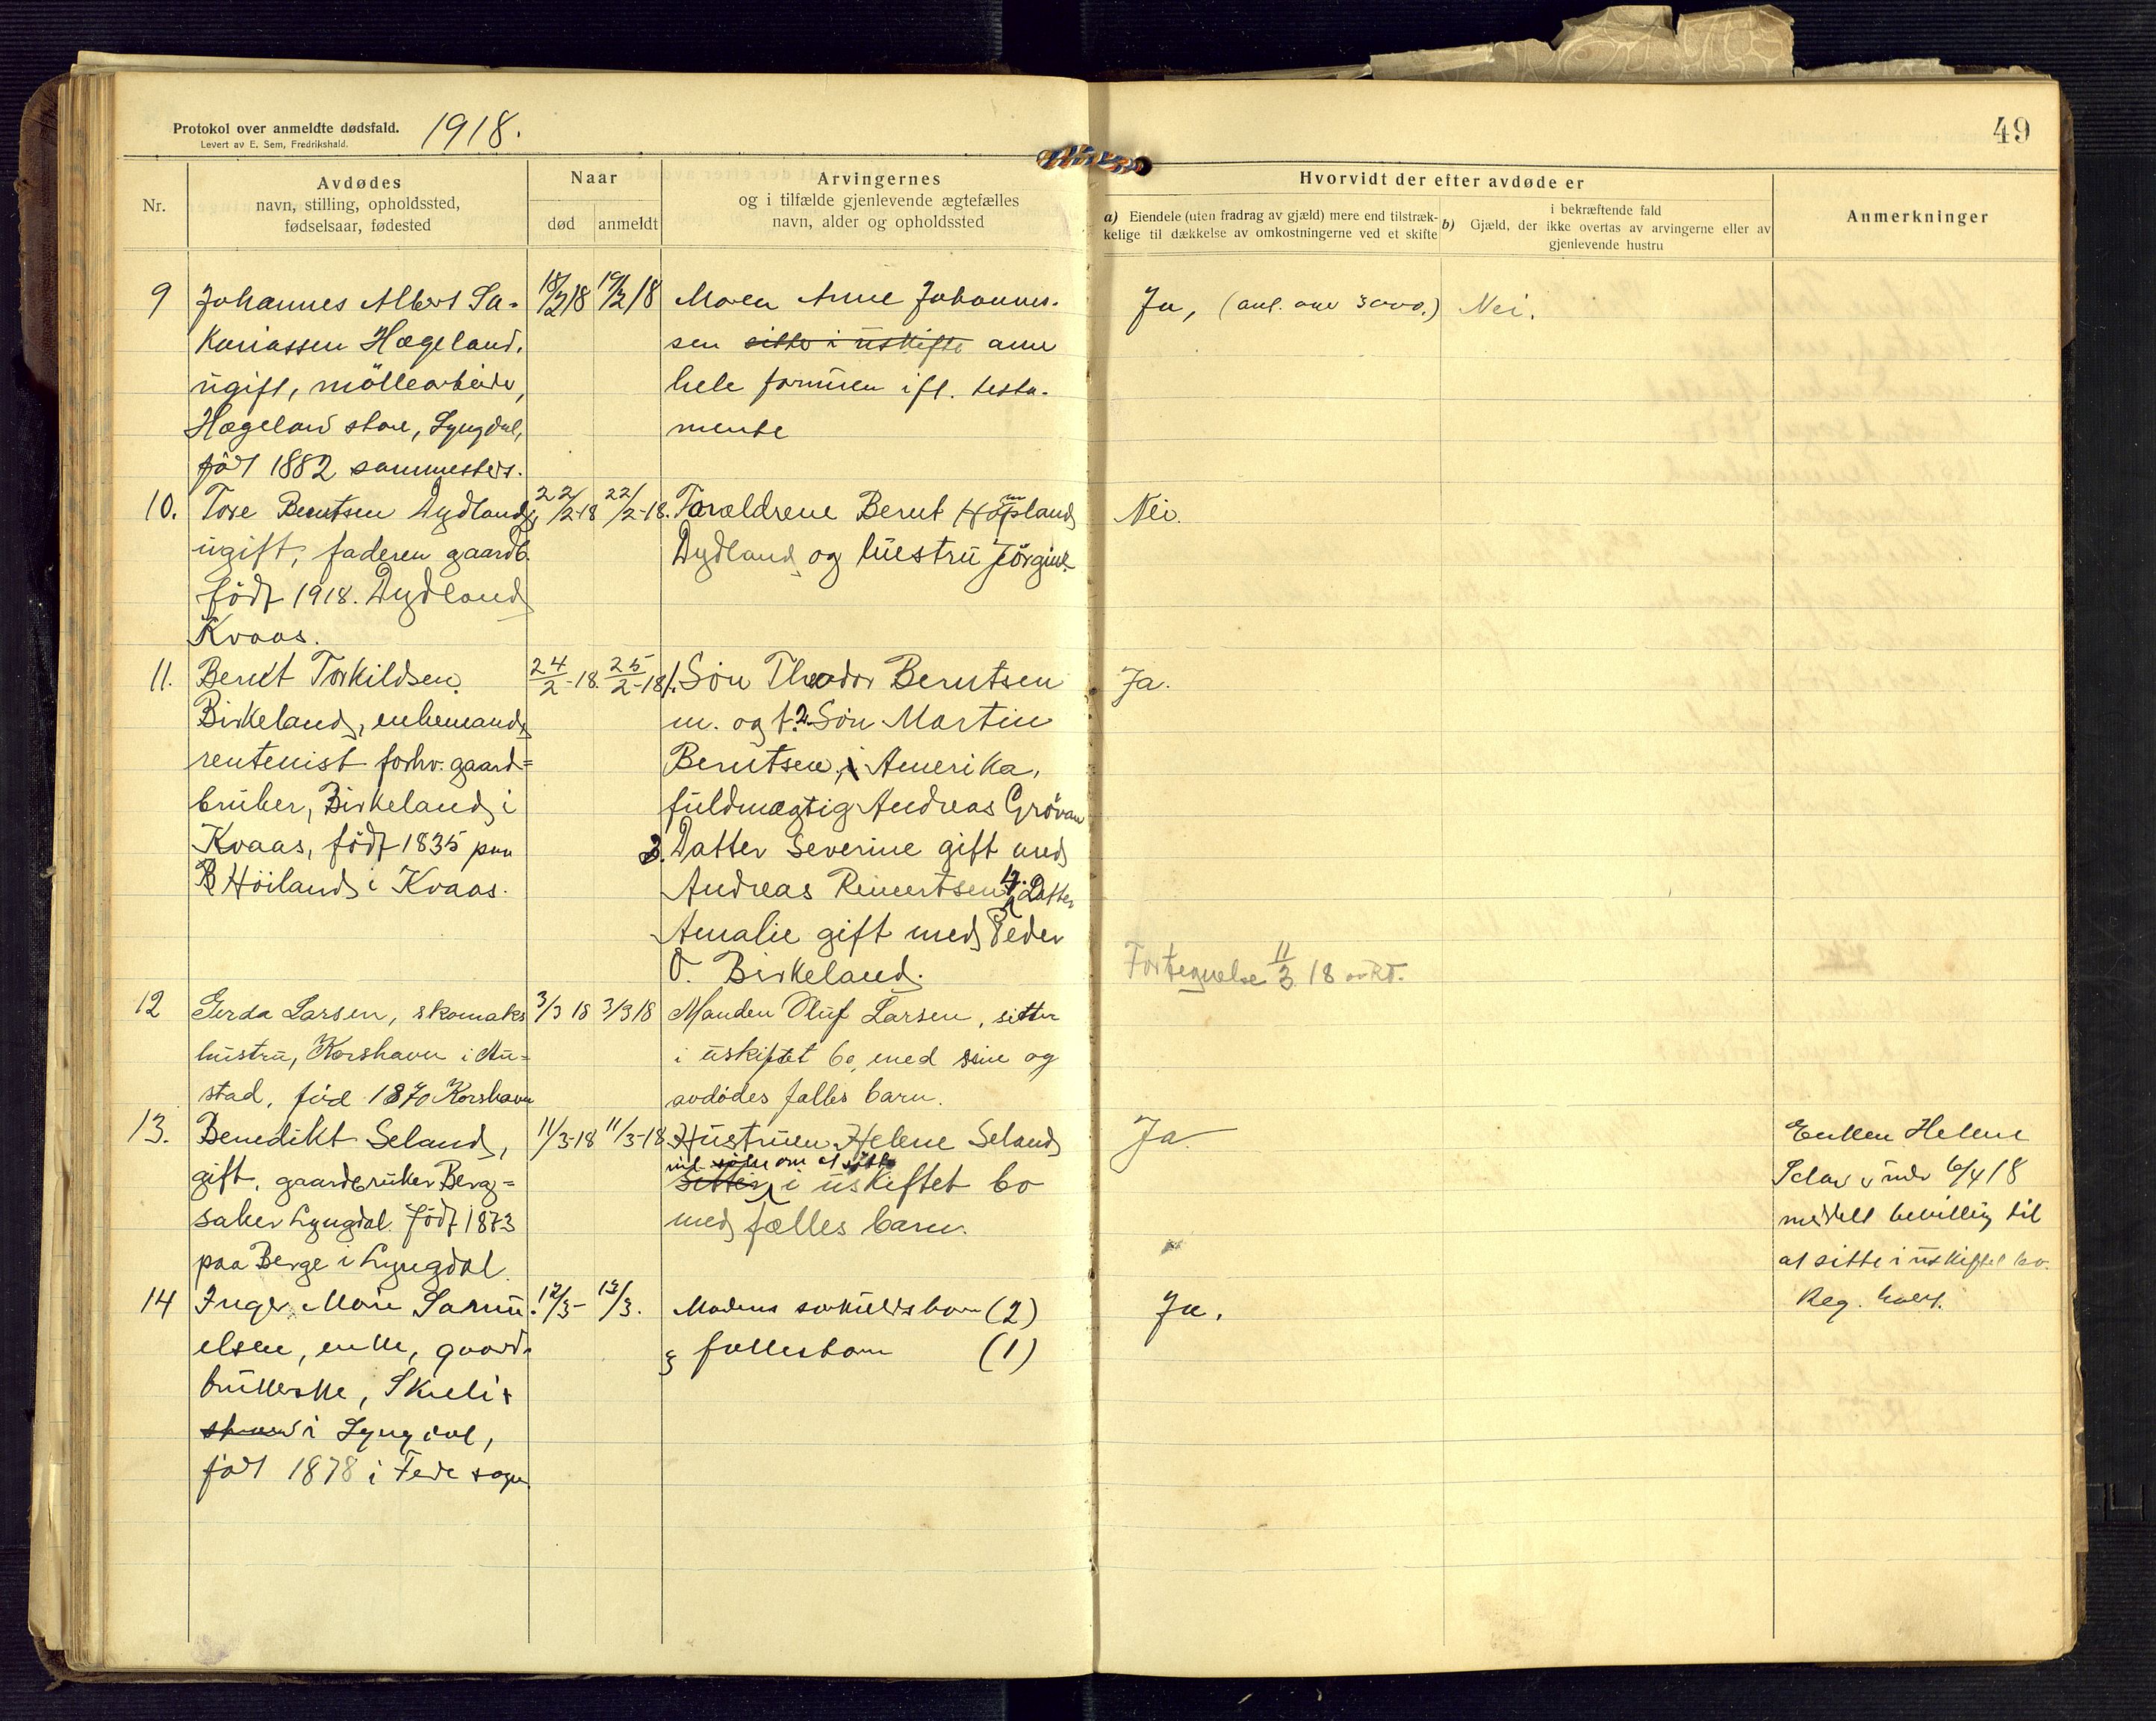 Protokol over anmeldte dødsfald.
Levert av E. Sem, Fredrikshald.
1918.
49
Nr.
Avdødes
navn, stilling, opholdssted,
fødselsaar, fødested
Naar
død
anmeldt
Arvingernes
og i tilfælde gjenlevende ægtefælles
navn, alder og opholdssted
Hvorvidt der efter avdøde er
a) Eiendele (uten fradrag av gjæld) mere end tilstræk-
kelige til dækkelse av omkostningerne ved et skifte
i bekræftende fald
b) Gjæld, der ikke overtas av arvingerne eller av
gjenlevende hustru
Anmerkninger
9
Johannes Albert Sa-
kariassen Hægeland,
ugift, möllearbeider,
Hægeland store, Lyngdal,
född 1882 sammesteds.
18/2 18
19/2 18
Moren Anne Johannes-
sen sitter i uskifte arver
hele formuen ifl. testa-
mente
Ja, (ant. over 3000.)
Nei.
10.
Tore Berntsen Dydland,
ugift, faderen gaardb.
född 1918. Dydland
Kvaas.
22/2-18
22/2-18.
Forældrene Bernt
Dydland og hustru Jörgine
Nei.
11.
Berndt Torkildsen
Birkeland, enkemand,
rentenist forhv. gaard=
bruker, Birkeland i
Kvaas, född 1835 paa
Höiland i Kvaas.
24/2-18.
25/2-18
1. Sön Theodor Berntsen
m. og f. 2. Sön Martin
Berntsen, i Amerika,
fuldmægtig Andreas Grövan
3. Datter Severine gift med
Andreas Reinertsen 4. Datter
Amalie gift med Peder
O. Birkeland.
Ja.
Fortegnelse 11/3 18
12
Gerda Larsen, skomaker
hustru, Korshavn i Au=
stad, föd 1870 Korshavn
3/3 18
3/3 18
Manden Oluf Larsen, sitter
i uskiftet bo, med sine og
avdödes fælles barn.
13.
Benedikt Seland,
gift, gaardbruker Berg=
saker Lyngdal född 1873
paa Berge i Lyngdal
11/3-18
11/3-18
Hustruen Helene Seland
vil søke om at sitte
sitter i uskiftet bo
med fælles barn.
Ja
Enken Helene
Seland under 6/4 18
meddelt bevilling til
at sitte i uskiftet bo.
14
Inger Marie Samu-
elsen, enke, gaard-
brukerske,
i Lyngdal,
född 1878 i Fede sogn
12/3-
13/3.
Mandens særkuldsbarn (2)
& fællesbarn (1)
Ja.